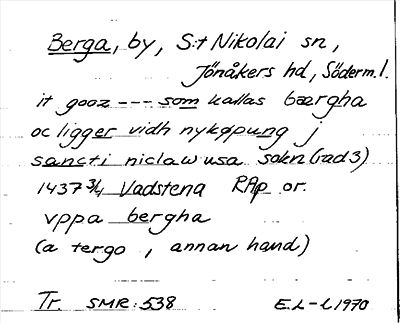 Berga, by, S:t Nikolai sn,
Jönåkers hd, Söderm.l.
it gooz --- som kallas bærgha
oc ligger vidh nykøpung j
sancti niclawusa sokn (rad 3)
1437 3/4 Vadstena RAp or.
vppa bergha
(a tergo, annan hand)
Tr. SMR: 538 E.L-l 1970